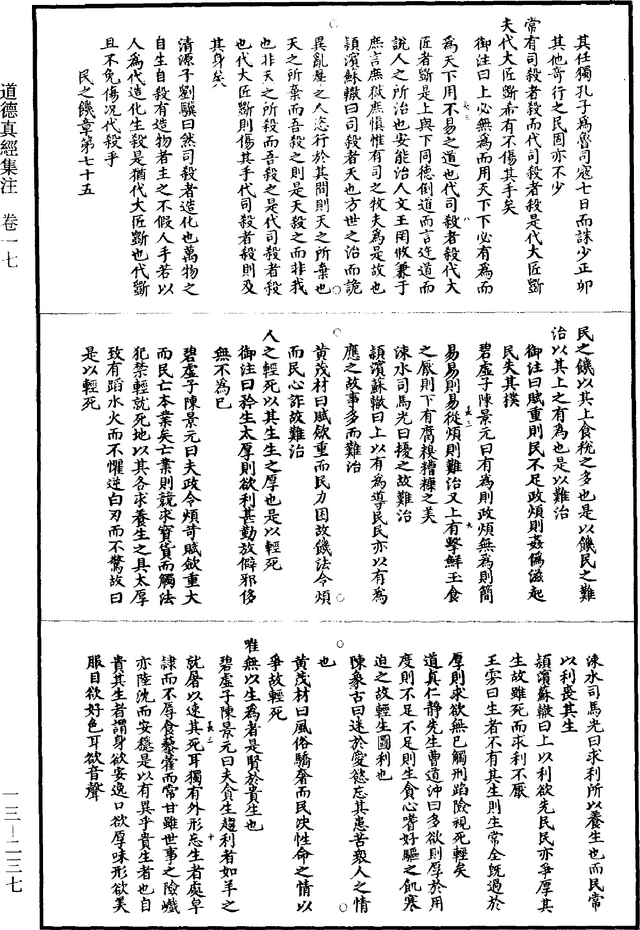 道德真經集注 卷一七
一三—二三七
其任獨孔子為魯司寇七日而誅少正卯
其他奇行之民固亦不少
常有司殺者殺而代司殺者殺是代大匠斲
夫代大匠斲希有不傷其手矣
御注曰上必無為而用天下下必有為而
為天下用不易之道也代司殺者殺代大
匠者斲是上與下同德倒道而言迕道而
說人之所治也安能治人文王罔攸兼于
庶言庶獄庶慎惟有司之牧夫為是故也
潁濱蘇轍曰司殺者天也方世之治而詭
異亂羣之人恣行於其間則天之所棄也
天之所棄而吾殺之則是天殺之而非我
也非天之所殺而吾殺之是代司殺者殺
也代大匠斲則傷其手代司殺者殺則及
其身矣
清源子劉驥曰然司殺者造化也萬物之
自生自殺有造物者主之不假人手若以
人為代造化生殺是猶代大匠斲也代斲
且不免傷況代殺乎
民之饑章第七十五
民之饑以其上食稅之多也是以饑民之難
治以其上之有為也是以難治
御注曰賦重則民不足政煩則姦偽滋起
民失其樸
碧虛子陳景元曰有為則政煩無為則簡
易易則易從煩則難治又上有擊鮮玉食
之厭則下有腐糗糟糠之美
涑水司馬光曰擾之故難治
潁濱蘇轍曰上以有為導民民亦以有為
應之故事多而難治
黃茂材曰賦斂重而民力困故饑法令煩
而民心詐故難治
人之輕死以其生生之厚也是以輕死
御注曰矜生太厚則欲利甚勤放僻邪侈
無不為已
碧虛子陳景元曰夫政令煩苛賦斂重大
而民亡本業矣亡業則競求寶貨而觸法
犯禁輕就死地以其各求養生之具太厚
致有蹈水火而不懼逆白刃而不驚故曰
是以輕死
涑水司馬光曰求利所以養生也而民常
以利喪其生
潁濱蘇轍曰上以利欲先民民亦爭厚其
生故雖死而求利不厭
王雱曰生者不有其生則生常全既過於
厚則求欲無已觸刑蹈險視死輕矣
道真仁靜先生曹道沖曰多欲則厚於用
度則不足不足則生貪心嗜好驅之飢寒
迫之故輕生圖利也
陳象古曰迷於愛慾忘其患苦眾人之情
也
黃茂材曰風俗驕奢而民泆性命之情以
爭故輕死
唯無以生為者是賢於貴生也
碧虛子陳景元曰夫貪生趨利者如羊之
就屠以速其死耳獨有外形忘生者處皁
隸而不辱食藜藿而常甘雖世事之險巇
亦陸沈而安穩是以有異乎貴生者也自
貴其生者謂身欲安逸口欲厚味形欲美
服目欲好色耳欲音聲